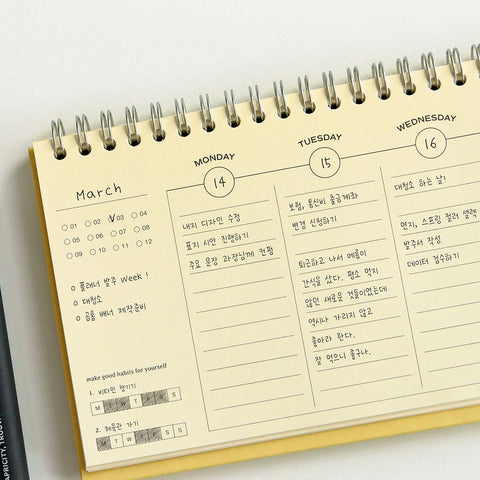 March
01 02 03 04
05 06 07 08
09 10 11 12
플래너 발주 Week !
대청소
공통 배너 제작준비
make good habits for yourself
1. 비타민 챙기기
M T W T F S S
2. 체육관 가기
M T W T F S S
MONDAY
14
내지 디자인 수정
표지 시안 진행하기
주요 문장 과장님께 컨펌
TUESDAY
15
보험, 통신비 출금계좌
변경 신청하기
퇴근하고 나서 메롱이
간식을 샀다. 평소 먹지
않던 새로운 것들이었는데
역시나 가리지 않고
좋아라 한다.
잘 먹으니 좋구나.
WEDNESDAY
16
대청소 하는 날!
면지, 스프링 컬러 셀렉
발주서 작성
데이터 검수하기
APRICITY, TROU